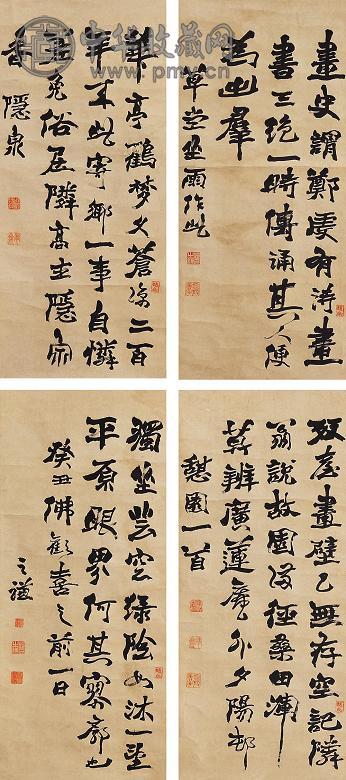 中华收藏网
www.pmv.cn
畫史謂鄭虔有詩畫
書三絕一時傳誦其人便
為出羣
草堂坐雨作此
華亭鶴梦久蒼涼二百
年來此寄鄉一事自憐
免俗居隣高士隱
隱泉
畫壁已無存空記隣
翁說故園沒徑桑田渾
莫辨廣蓮庵外夕陽邨
憩園一首
獨坐芸窗綠陰如沐一望
平原眼界何其寥廓也
癸丑佛歡喜之前一日
之